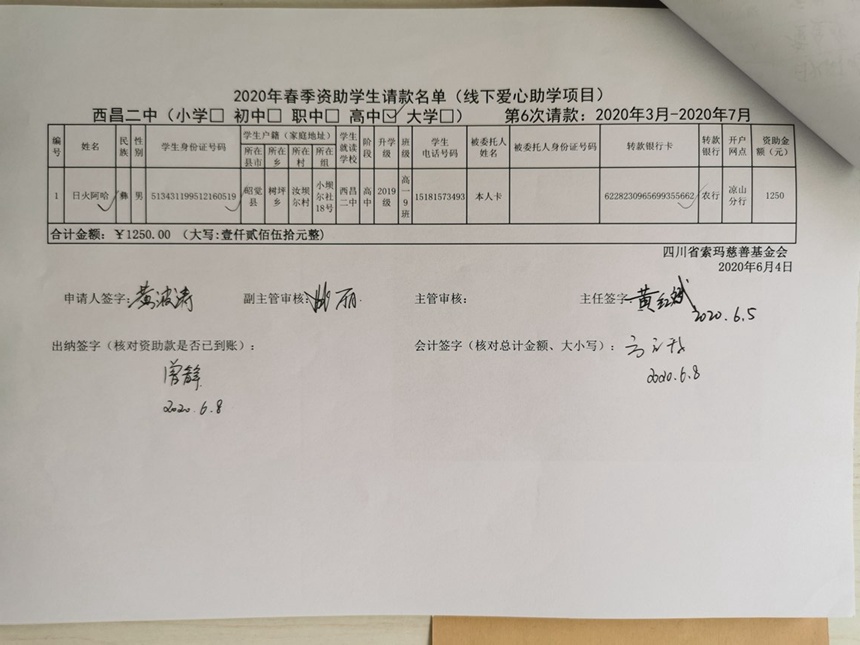 2020年春季资助学生请款名单（线下爱心助学项目）
西昌二中（小学□ 初中□ 职中□ 高中☑ 大学□） 第6次请款：2020年3月-2020年7月
编号 姓名 民族 性别 学生身份证号码 学生户籍（家庭地址） 学生就读学校 阶段 升学级 班级 学生电话号码 被委托人姓名 被委托人身份证号码 转款银行卡 转款银行 开户网点 资助金额（元）
所在县市 所在乡 所在村 所在组
1 日火阿哈 彝 男 513431199512160519 昭觉县 树坪乡 汝坝尔村 小坝尔社18号 西昌二中 高中 2019级 高一9班 15181573493 本人卡 6228230965699355662 农行 凉山分行 1250
合计金额：￥1250.00 （大写:壹仟贰佰伍拾元整）
四川省索玛慈善基金会
2020年6月4日
申请人签字：黄波涛 副主管审核： 主管审核： 主任签字：黄红斌
2020.6.5
出纳签字（核对资助款是否已到账）： 会计签字（核对总计金额、大小写）：
曾静
2020.6.8
2020.6.8